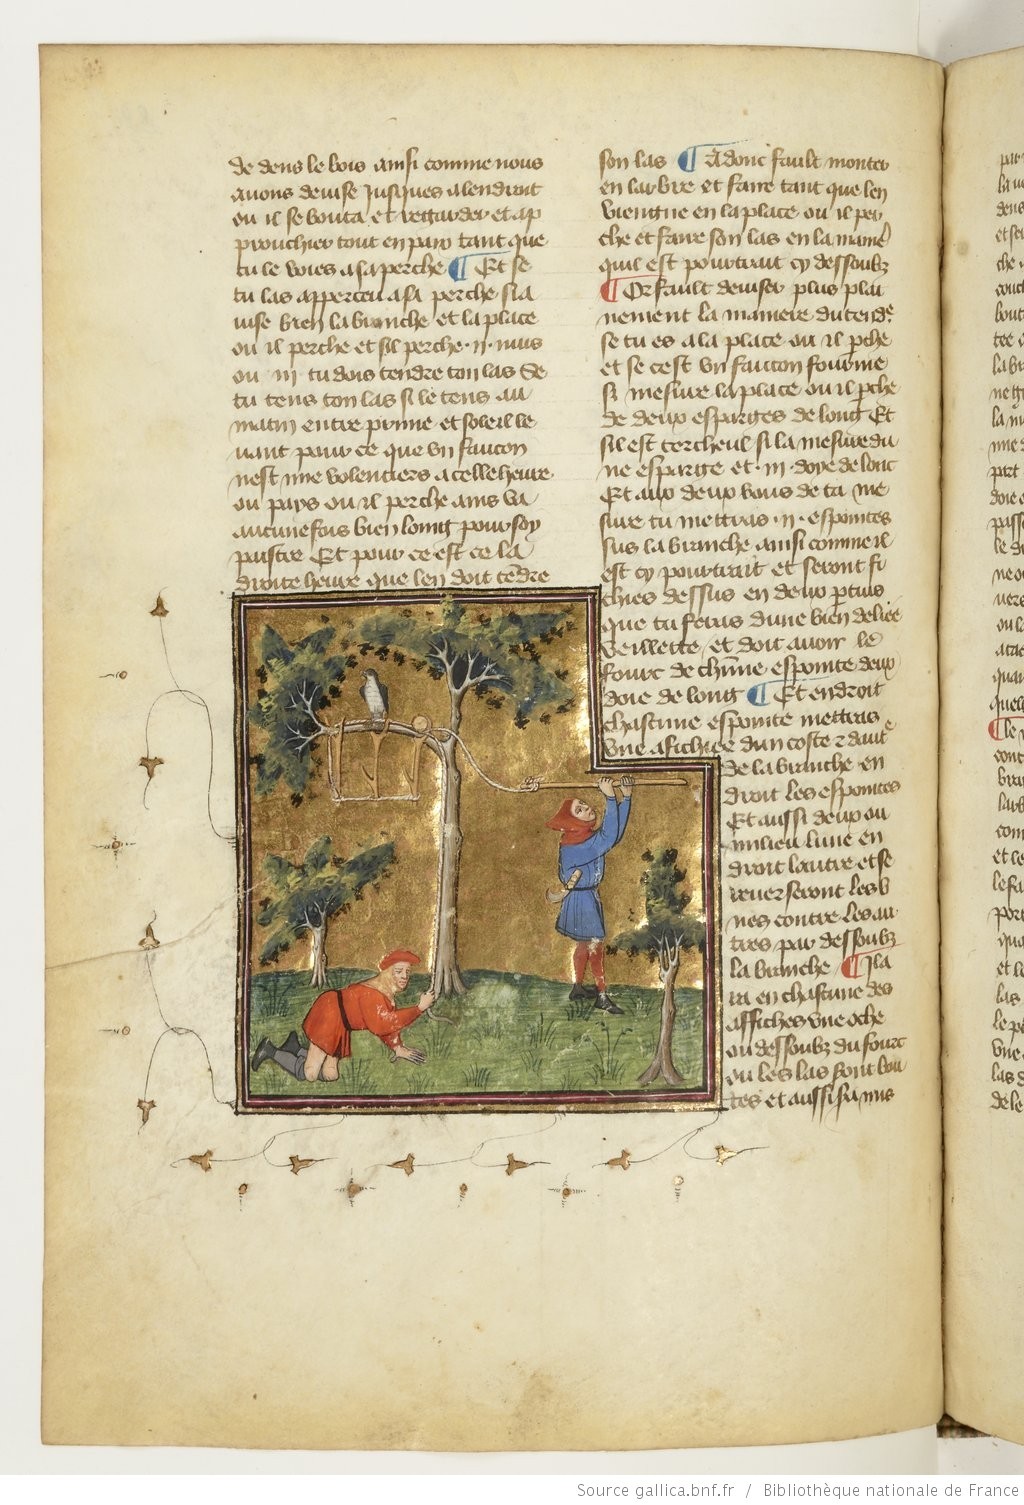 de dens le bois ainsi comme nous
auons deuise jusques alendroit
ou il se bouta et regarder et ap
prouchier tout en paix tant que
tu le voies a sa perche ¶ Et se
tu las apperceu a sa perche si a
uise bien la branche et la place
ou il perche et sil perche .ii. nuis
ou .iii. tu dois tendre ton las Se
tu tens ton las si le tens au
matin entre prime et soleil le
uant pour ce que vn faucon
nest mie volentiers a celle heure
ou pays ou il perche ains va
aucunefois bien loing pour soy
paistre Et pour ce est ce la
droite heure que len doit tēdre
son las ¶ Adonc fault monter
en larbre et faire tant que len
viengne en la place ou il per
che et faire son las en la manie
quil est pourtrait cy dessoubz
¶ Or fault deuiser plus plai
nement la maniere du tendr
se tu es a la place ou il pche
et se cest vn faucon fourme
si mesure la place ou il pche
de deux esparges de long Et
sil est tercheul si la mesure du
ne esparge et .iii. doye de lonc
Et aux deux bous de ta me
sure tu mettras .ii. espointes
sus la branche ainsi comme il
est cy pourtrait et seront fi
chies dessus en deux ptuis
que tu feras dune bien deliee
veillette et doit auoir le
fourc de chūne espointe deux
doie de long ¶ Et endroit
chascune espointe mettras
vne afichiee dun coste z daut
de la branche en
droit les espointes
Et aussi deux ou
milieu lune en
droit lautre et se
seront les v
nes contre les au
tres par dessoubz
la branche ¶ Il a
ra en chascune des
affiches vne oche
ou dessoubz du fourc
ou les las sont bou
tes et aussi
Source gallica.bnf.fr / Bibliothèque nationale de France